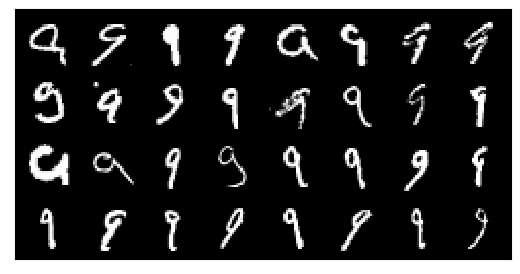 9 9 9 9 9 9 9 9
9 9 9 9 9 9 9 9
9 9 9 9 9 9 9 9
9 9 9 9 9 9 9 9